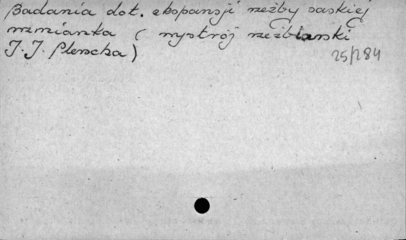 Badania dot. ekspansji rzeźby saskiej
wzmianka ( wystrój rzeźbiarski
J. J. Plerscha)
25/284